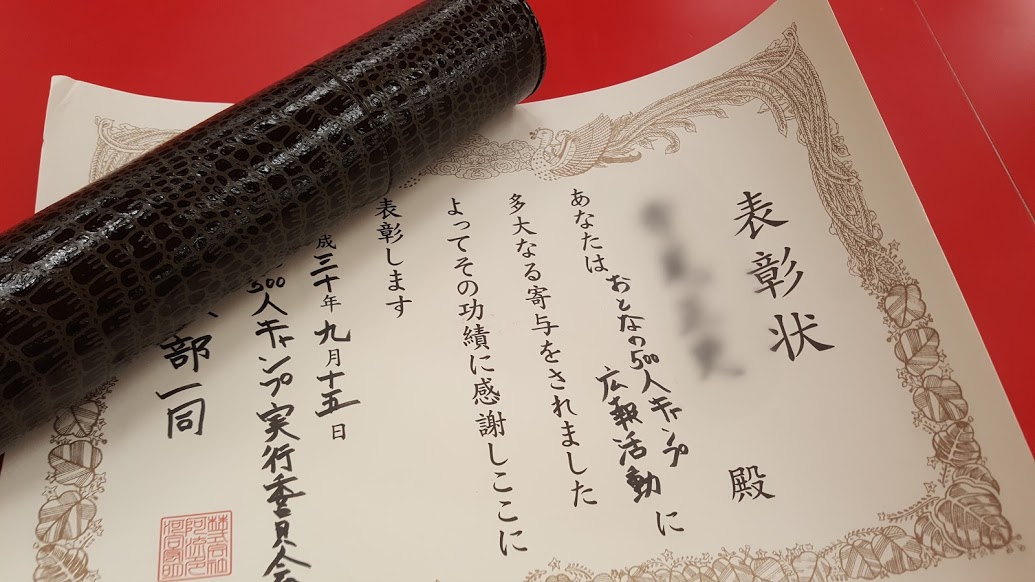 表彰状
殿
あなたはおとなの500人キャンプ
広報活動に
多大なる寄与をされました
よってその功績に感謝しここに
表彰します
成三十年九月十五日
500人キャンプ実行委員会
部一同